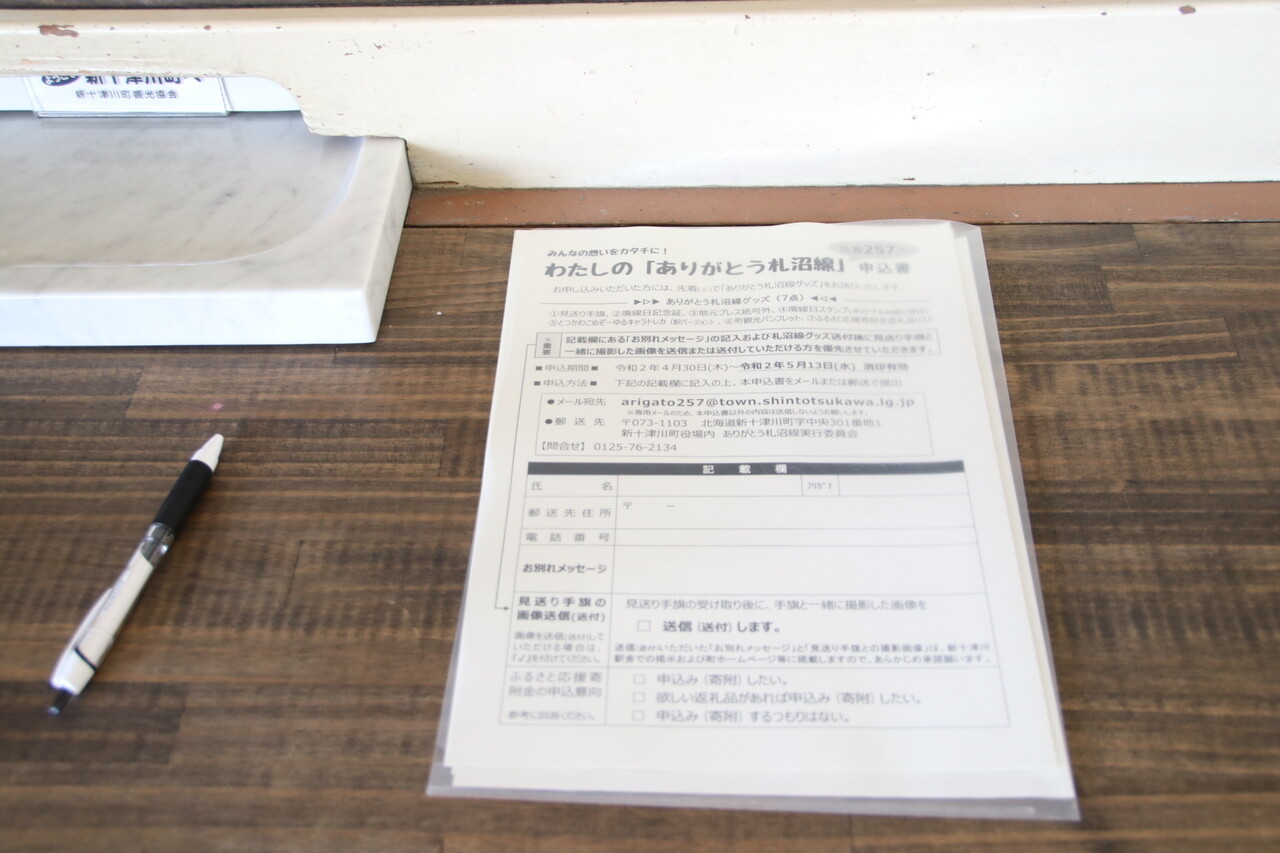 新十津川町へ
新十津川町観光協会
みんなの想いをカタチに！
先着257
わたしの「ありがとう札沼線」申込書
お申し込みいただいた方には、先着(※)で「ありがとう札沼線グッズ」をお送りします。
▷▷▷ ありがとう札沼線グッズ（7点）◁◁◁
①見送り手旗、②廃線日記念証、③地元プレス紙号外、④廃線日スタンプ
⑤とつかわこめぞーゆるキャラトレカ（駅バージョン）、⑥町観光パンフレット、⑦ふるさと応援寄附
※重要 記載欄にある「お別れメッセージ」の記入および札沼線グッズ送付後に見送り手旗と
一緒に撮影した画像を送信または送付していただける方を優先させていただきます。
■申込期間■ 令和２年４月30日(木)～令和２年５月13日(水) 消印有効
■申込方法■ 下記の記載欄に記入の上、本申込書をメールまたは郵送で提出
●メール宛先 arigato257@town.shintotsukawa.lg.jp
※専用メールのため、本申込書以外の内容は送信しないようお願いします。
●郵 送 先 〒073-1103 北海道新十津川町字中央301番地1
新十津川町役場内 ありがとう札沼線実行委員会
【問合せ】0125-76-2134
記 載 欄
氏 名 ﾌﾘｶﾞﾅ
郵送先住所 〒 －
電話番号
お別れメッセージ
見送り手旗の
画像送信(送付)
画像を送信(送付)して
いただける場合は、
「✓」を付けてください。
見送り手旗の受け取り後に、手旗と一緒に撮影した画像を
□ 送信（送付）します。
送信(送付)いただいた「お別れメッセージ」と「見送り手旗との撮影画像」は、新十津川
駅舎での掲示および町ホームページ等に掲載しますので、あらかじめ承諾願います。
ふるさと応援寄
附金の申込意向
参考に回答ください。
□ 申込み（寄附）したい。
□ 欲しい返礼品があれば申込み（寄附）したい。
□ 申込み（寄附）するつもりはない。